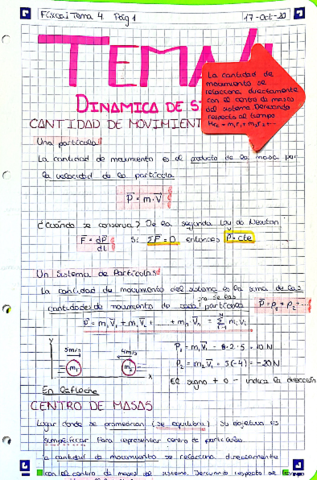 Física I Tema 4 Pág 1
17-Oct-20
TEMA 4
DINAMICA DE S
La cantidad de
movimiento se
relaciona directamente
con el centro de masa
del sistema Derivando
respecto al tiempo
CANTIDAD DE MOVIMIENT
Una partícula
La cantidad de movimiento es el producto de la masa por
la velocidad de la partícula
P = m·V
¿Cuándo se conserva? De la segunda ley de Newton
F = dP/dt Si ΣF = 0 entonces P = cte
Un Sistema de Partículas
La cantidad de movimiento del sistema es la suma de las
cantidades de movimiento de cada partícula P = P₁ + P₂ + ...
P = m₁V₁ + m₂V₂ + + mₙVₙ = Σ mᵢVᵢ
Y
5m/s 4m/s
m₁ m₂
X
P₁ = m₁V₁ = 2·5 = 10 N
P₂ = m₂V₂ = 5(-4) = -20 N
El signo + o - indica la dirección
CENTRO DE MASAS
Lugar donde se promedian (se equilibra) Su objetivo es
simplificar Para representar centro de partículas
a cantidad de movimiento se relaciona directamente
con el centro de masa del sistema Derivando respecto al tiempo